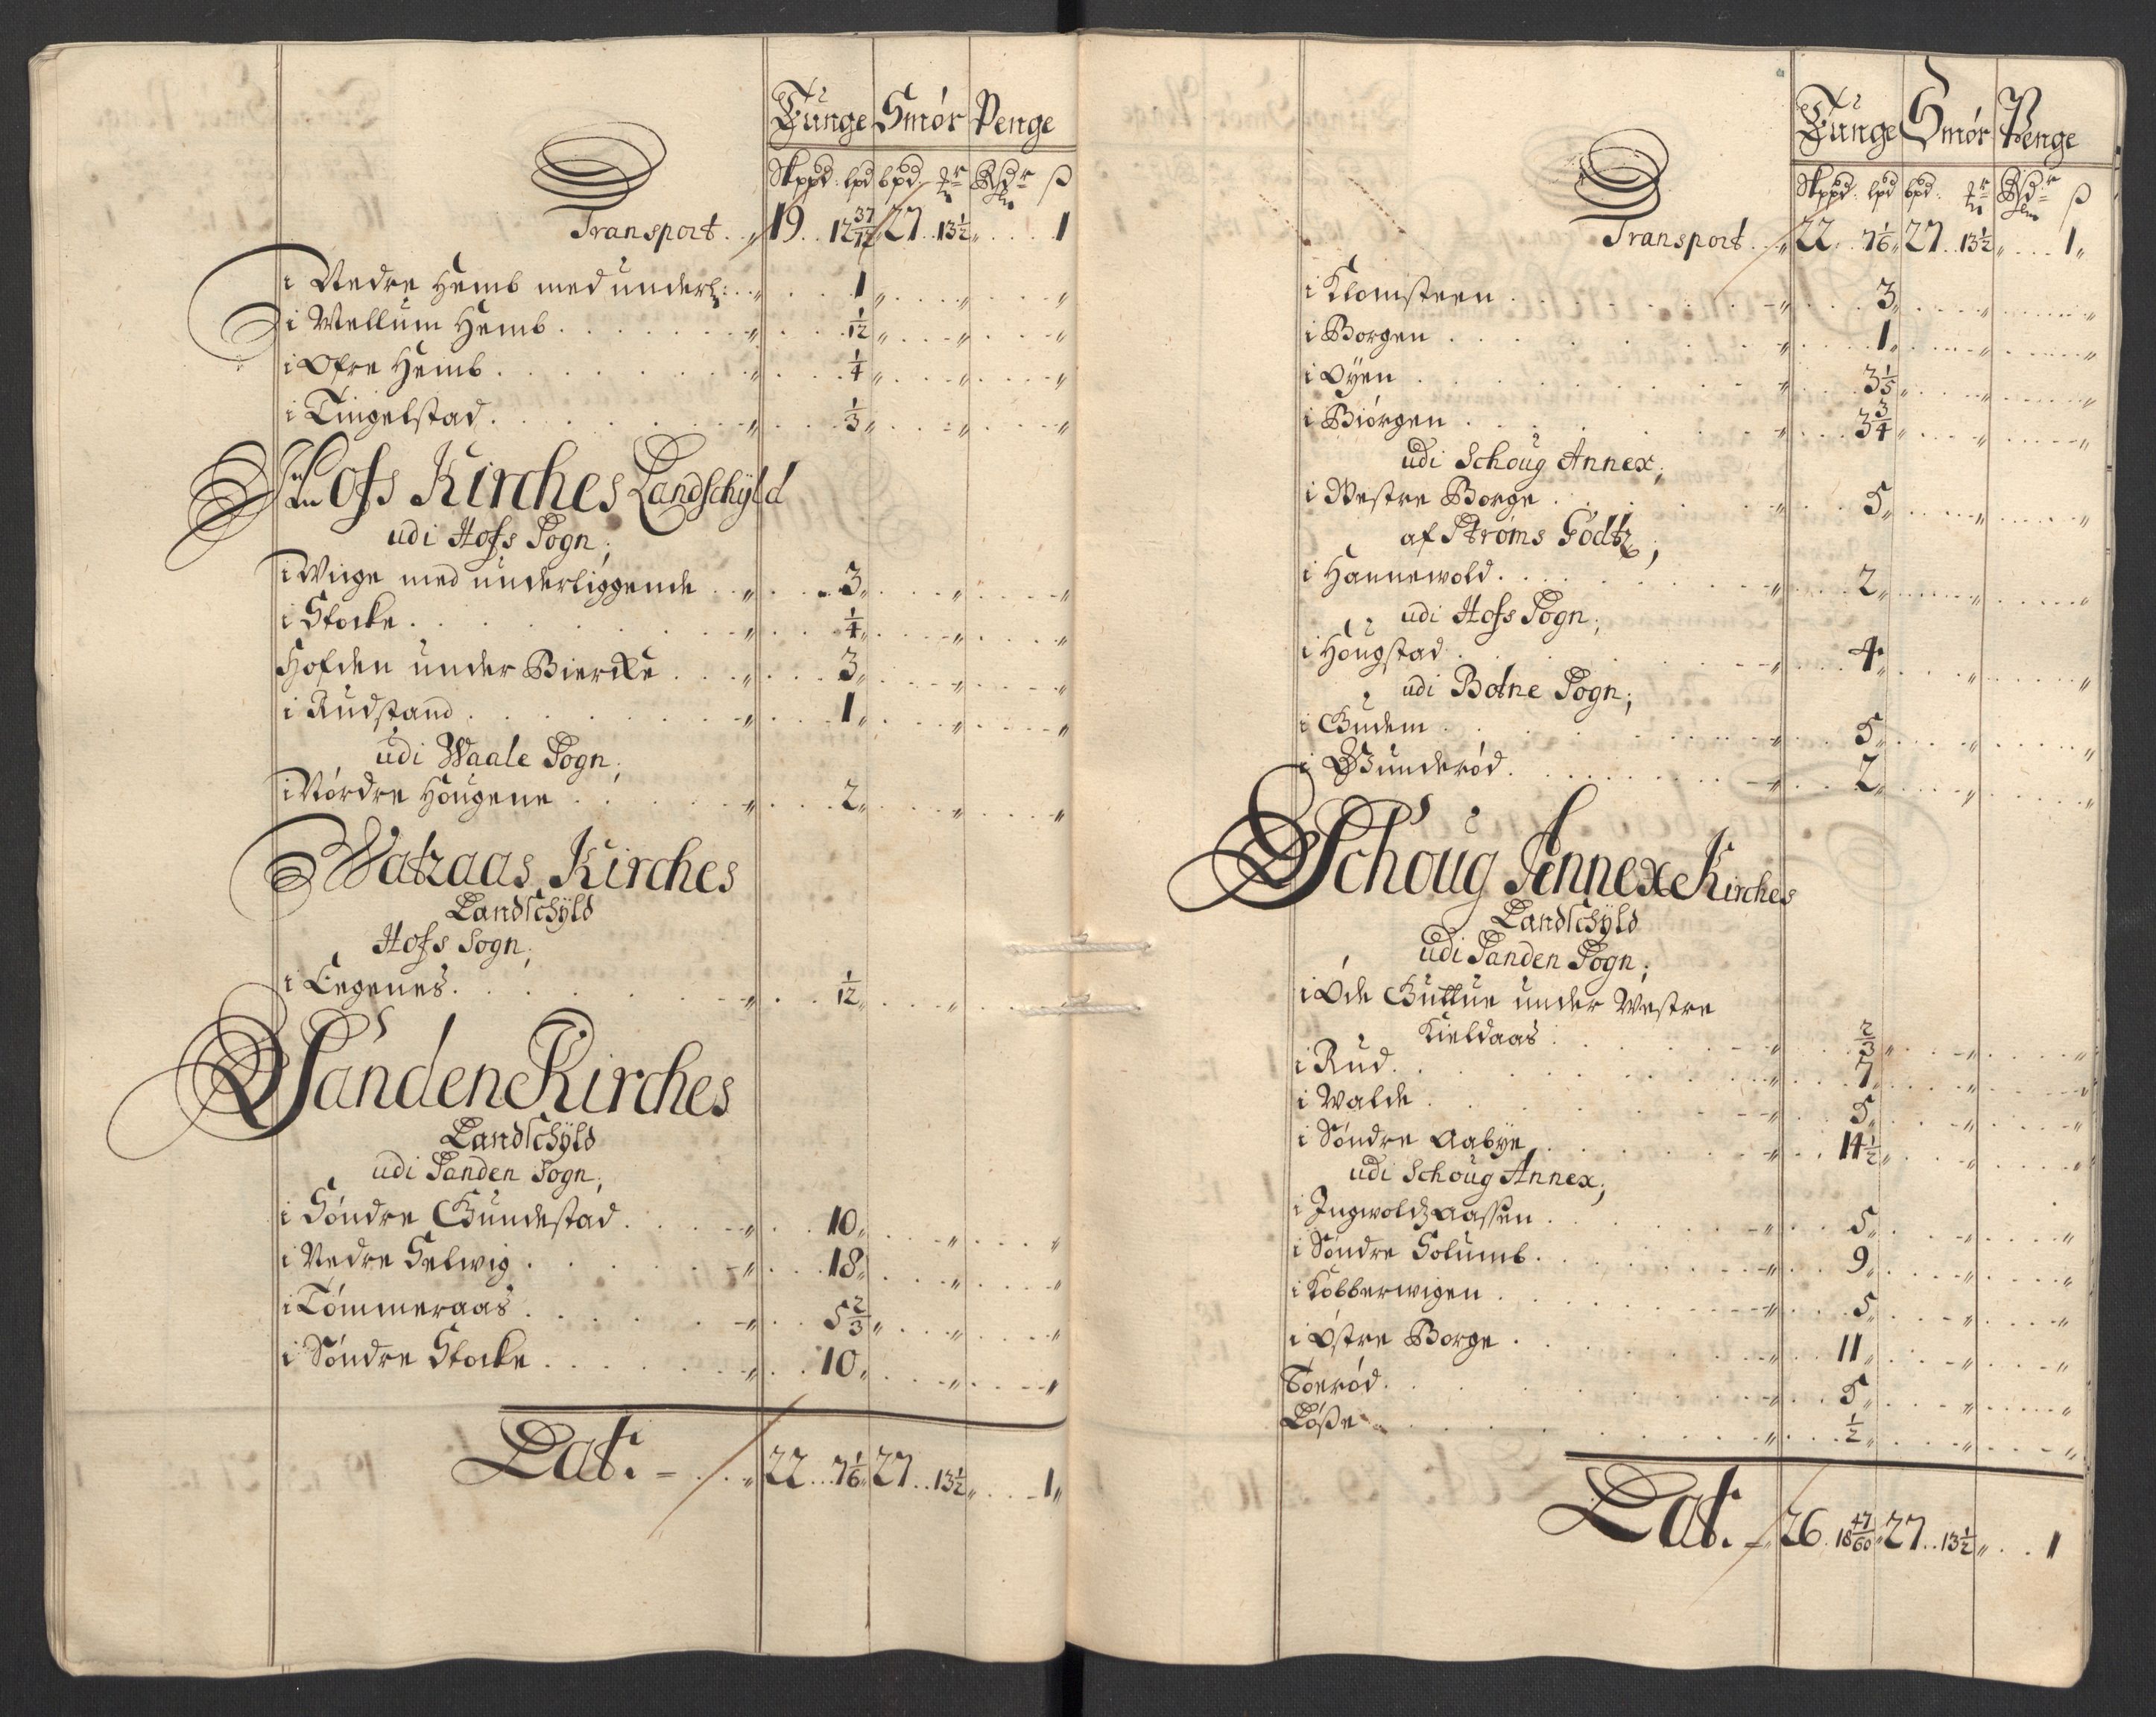 Tunge Smór Penge
Skppd: lpd bpd mr Rsdr ß
Transport 19 12 37/72 27 13 1/2 1
i Nedre Hemb med underl: 1
i Wellum Hemb 1/12
i Ofre Hemb 1/4
i Tingelstad 1/3
Hofs Kirches Landschÿld
udi Hofs Sogn;
i Wiige med underliggende 3
i Stocke 1/4
Hofden under Biercke 3
i Rudstand 1
udi Waale Sogn;
i Nórdre Hougene 2
Watzaas Kirches
Landschÿld
Hofs Sogn;
i Eegenes 1/12
Sanden Kirches
Landschÿld
udi Sanden Sogn;
i Sóndre Gundestad 10
i Nedre Selwig 18
i Tómmeraas 5 2/3
i Sóndre Stocke 10
Lat: 22 7 1/6 27 13 1/2 1
Tunge Smór Penge
Skppd: lpd bpd: mr Rsdr ß
Transport 22 7 1/6 27 13 1/2 1
i Klomsteen 3
i Borgen 1
i Oÿen 3 1/5
i Biórgen 3 3/4
udi Schoug Annex;
i Westre Borge 5
af Stróms Godtz;
i Hannewold 2
udi Hofs Sogn;
i Hougstad 4
udi Botne Sogn;
i Gudem 5
i Gunderód 2
Schoug Annexe Kirches
Landschÿld
udi Sanden Sogn;
i Óde Guttue under Westre
Kieldaas 2/3
i Rud 7
i Walde 5
i Sóndre Aabÿe 14 1/2
udi Schoug Annex;
i Ingwoldz Aassen 5
i Sóndre Solumb 9
i Kobberwigen 5
i Óstre Borge 11
Tóeród 5
Lóße 1/2
Lat: 26 18 47/60 27 13 1/2 1